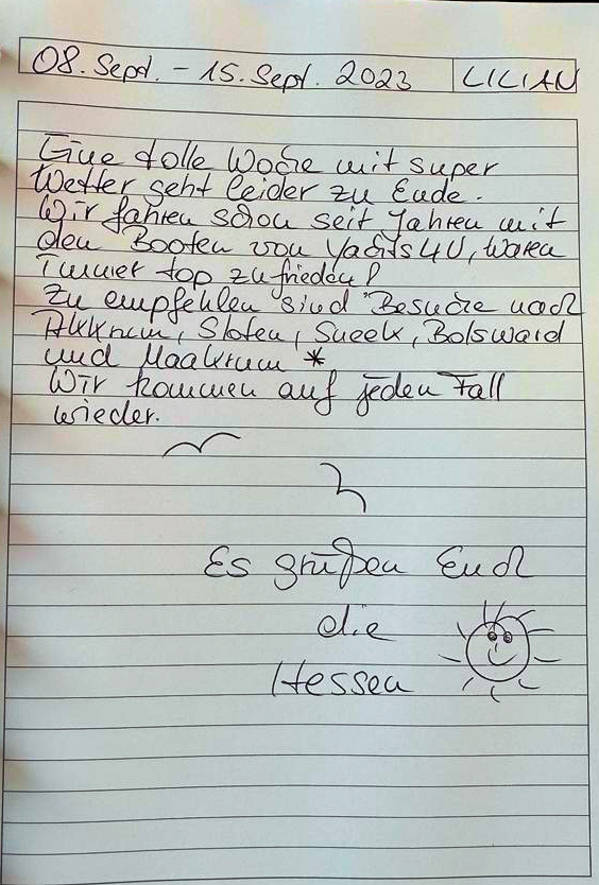 08. Sept. - 15. Sept. 2023 LILIAN
Eine tolle Woche mit super
Wetter geht leider zu Ende.
Wir fahren schon seit Jahren mit
den Booten von Yachts4U, waren
immer top zufrieden!
Zu empfehlen sind Besuche nach
Akkrum, Sloten, Sneek, Bolsward
und Maakrum *
Wir kommen auf jeden Fall
wieder.
Es grüßen Euch
die
Hessen